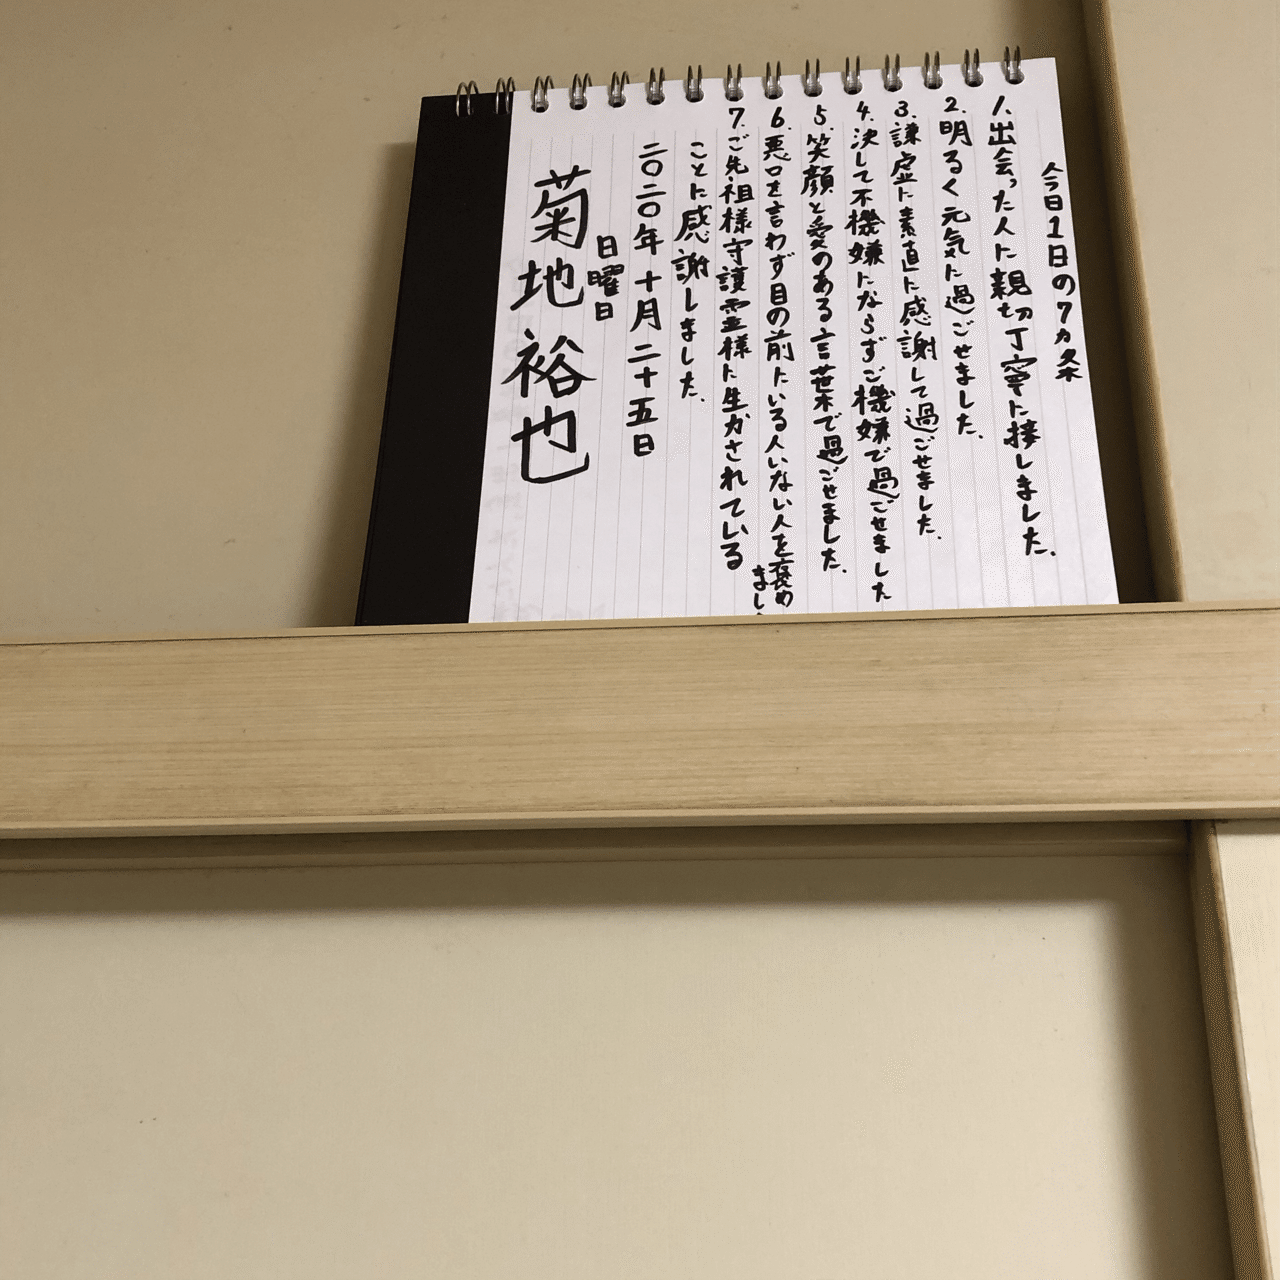 今日1日の7カ条
1.出会った人に親切丁寧に接しました.
2.明るく元気に過ごせました.
3.謙虚に素直に感謝して過ごせました.
4.決して不機嫌にならずご機嫌で過ごせました
5.笑顔と愛のある言葉で過ごせました.
6.悪口を言わず目の前にいる人いない人を褒め
まし
7.ご先祖様守護霊様に生かされている
ことに感謝しました.
二〇二〇年十月二十五日
日曜日
菊地裕也